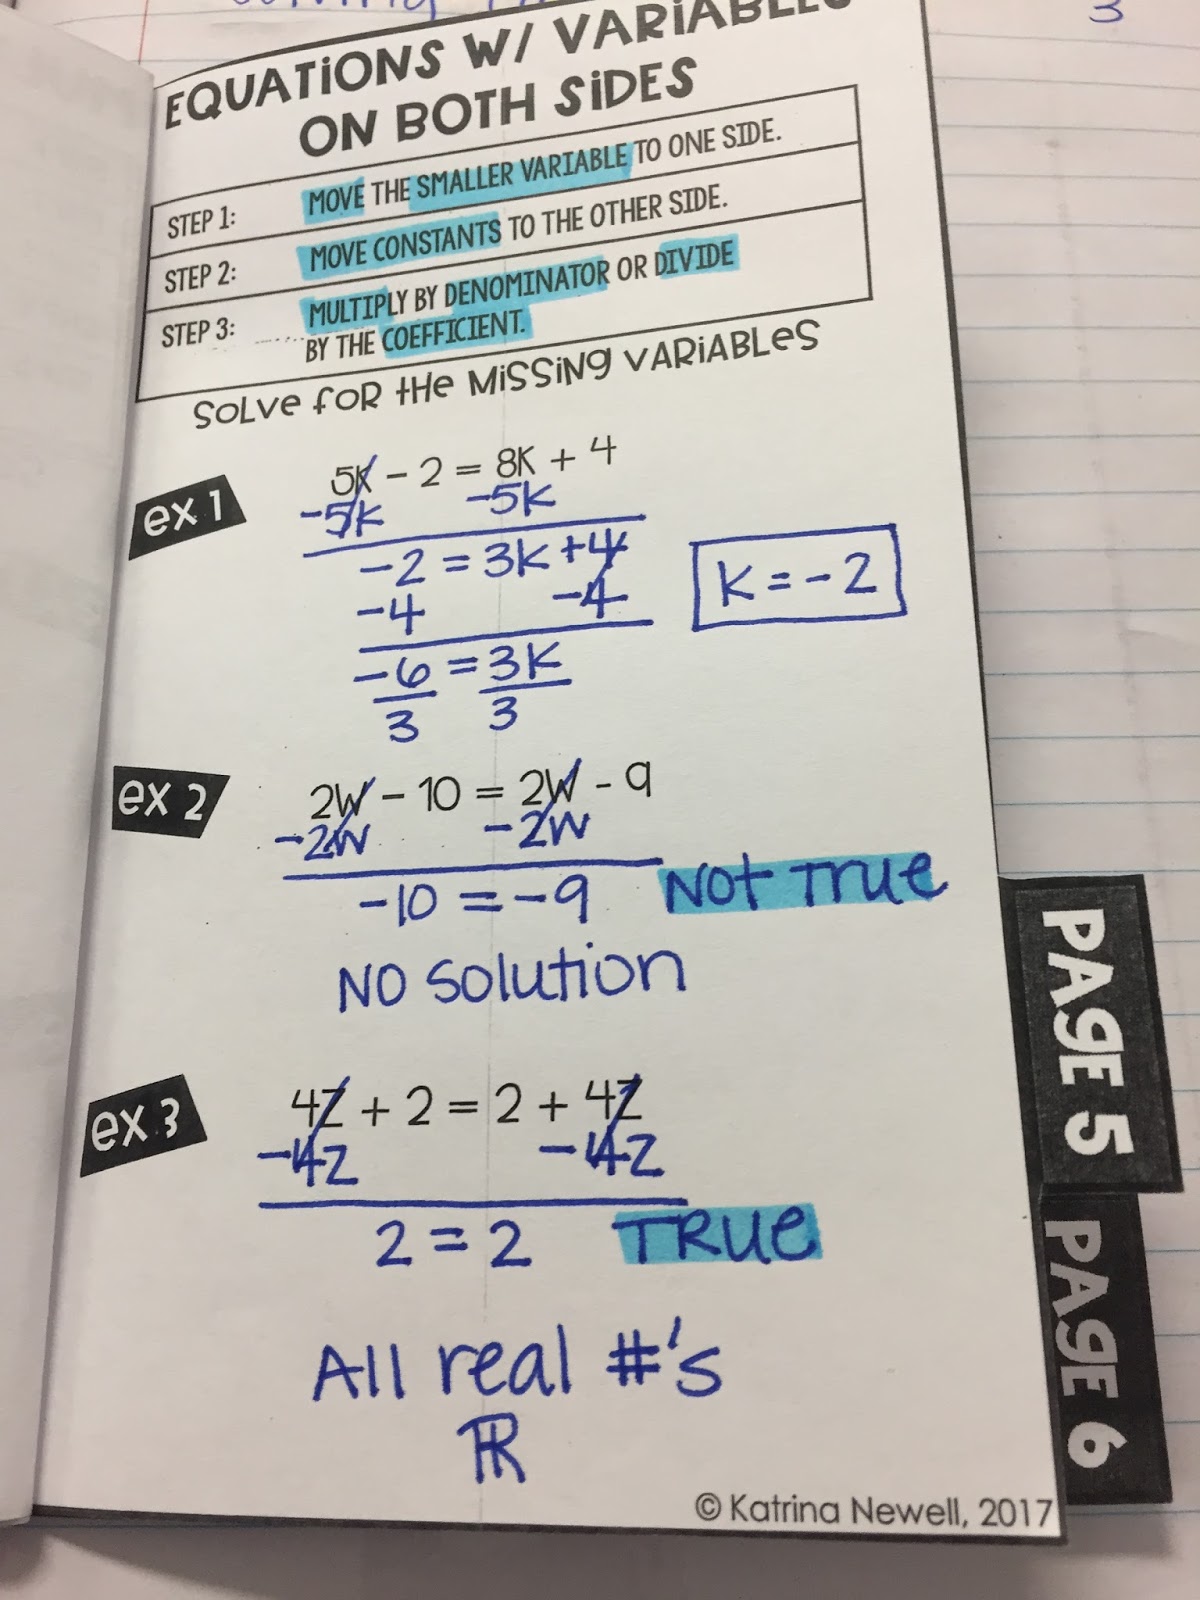 EQUATIONS W/ VARIABLES
ON BOTH SIDES
STEP 1: MOVE THE SMALLER VARIABLE TO ONE SIDE.
STEP 2: MOVE CONSTANTS TO THE OTHER SIDE.
STEP 3: MULTIPLY BY DENOMINATOR OR DIVIDE
BY THE COEFFICIENT.
SOLVE FOR THE MISSING VARIABLES
ex 1
5K - 2 = 8K + 4
-5K -5K
-2 = 3K + 4
-4 -4
-6 = 3K
3 3
K = -2
ex 2
2W - 10 = 2W - 9
-2W -2W
-10 = -9 NOT TRUE
NO solution
ex 3
4Z + 2 = 2 + 4Z
-4Z -4Z
2 = 2 TRUE
All real #'s
ℝ
© Katrina Newell, 2017
PAGE 5
PAGE 6
3